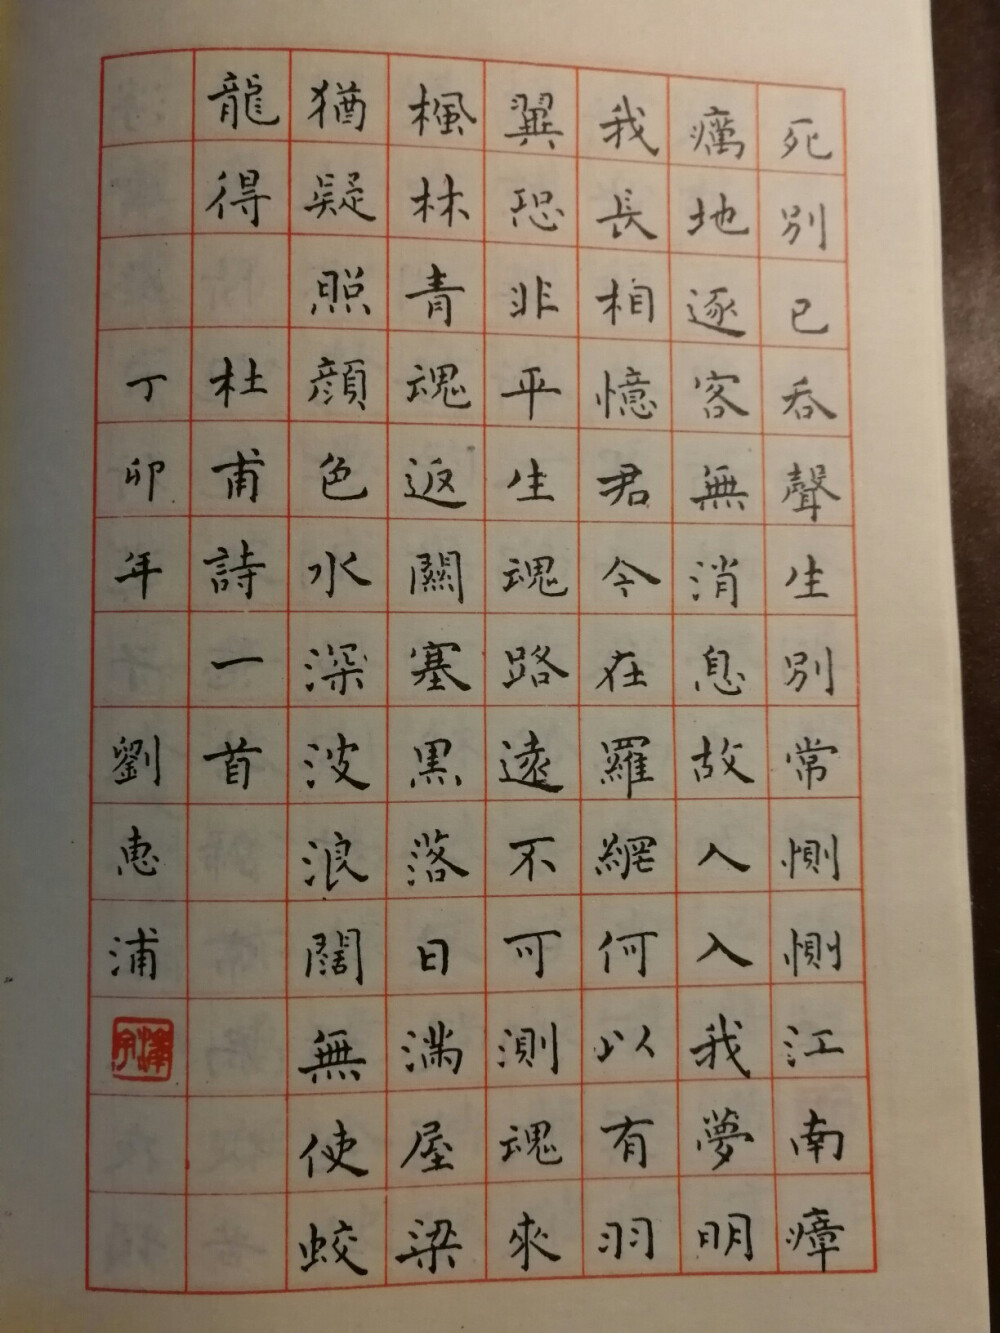 死別已吞聲生別常惻惻江南瘴
癘地逐客無消息故人入我夢明
我長相憶君今在羅網何以有羽
翼恐非平生魂路遠不可測魂來
楓林青魂返關塞黑落日滿屋梁
猶疑照顏色水深波浪闊無使蛟
龍得 杜甫詩一首
丁卯年 劉惠浦